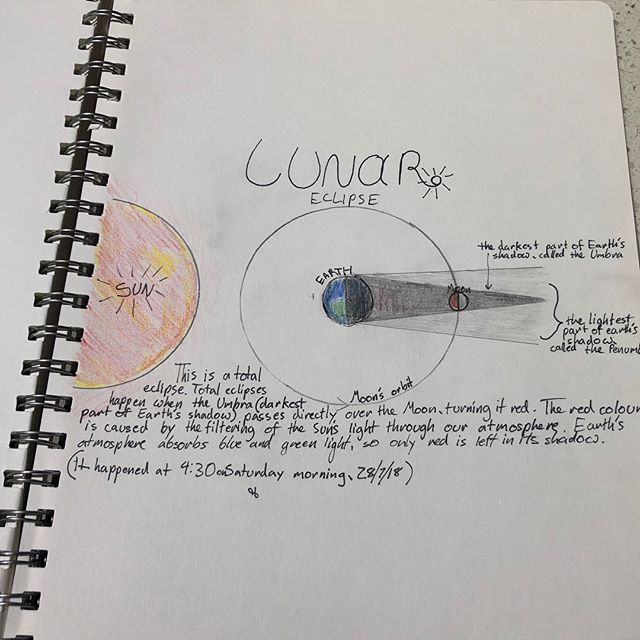 LUNAR
ECLIPSE
the darkest part of Earth's
shadow, called the Umbra
EARTH
SUN
Moon
the lightest
part of earth's
shadow
called the Penumb
Moon's orbit
This is a total
eclipse. Total eclipses
happen when the Umbra (darkest
part of Earth's shadow) passes directly over the Moon, turning it red. The red colour
is caused by the filtering of the Suns light through our atmosphere. Earth's
atmosphere absorbs blue and green light, so only red is left in its shadow.
(It happened at 4:30 on Saturday morning, 28/7/18)